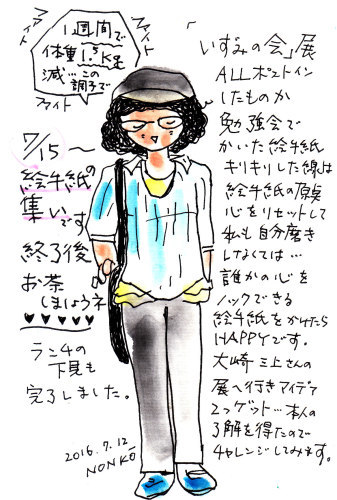 1週間で
体重1.5K
減…この
調子で
ファイト
ファイト
ファイト
7/15〜
絵手紙の
集いです
終了後
お茶
しましょうネ
♥♥♥♥♥♥
ランチの
下見も
完了しました。
2016.7.12
NONKO
いずみの会」展
ALLポストイン
したものか
勉強会で
かいた絵手紙
キリキリした線は
絵手紙の原点
心をリセットして
私も自分磨き
しなくては…
誰かの心を
ノックできる
絵手紙をかけたら
HAPPYです。
大崎三上さんの
展へ行きアイデア
2つゲット…本人の
了解を得たので
チャレンジしてみます。